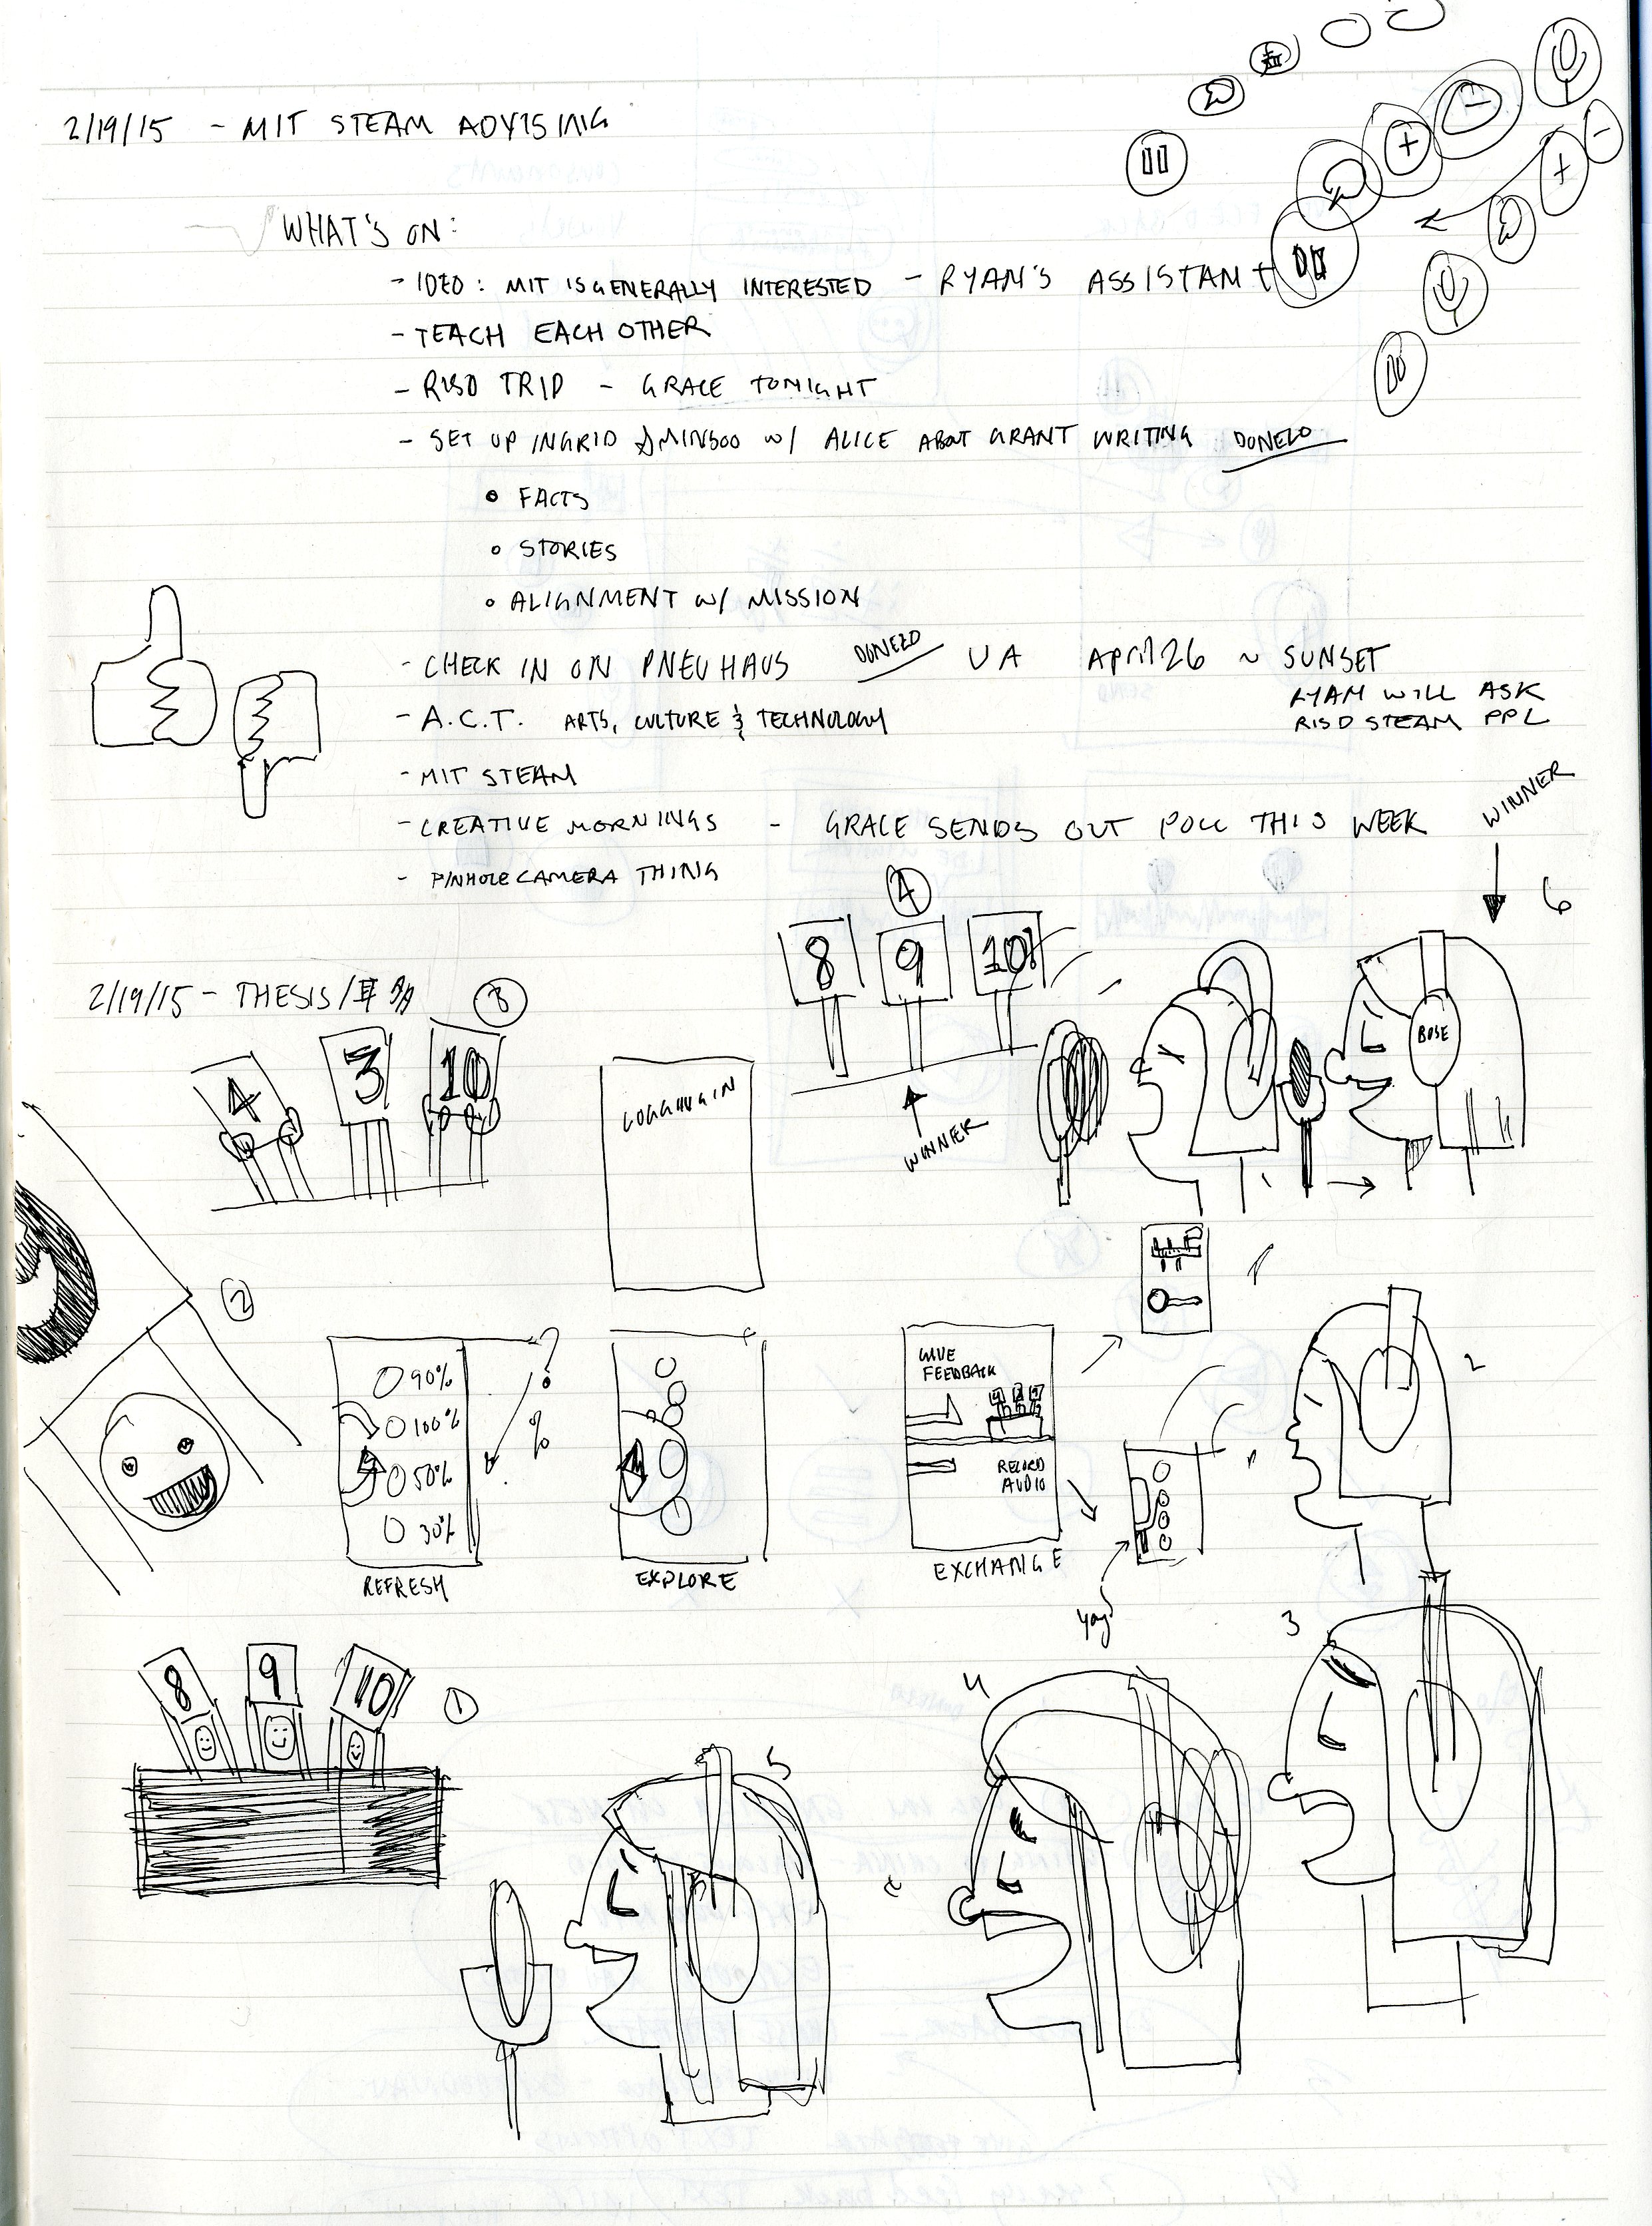 2/19/15 - MIT STEAM ADVISING
WHAT'S ON:
- IDEO : MIT IS GENERALLY INTERESTED - RYAN'S ASSISTANT
- TEACH EACH OTHER
- RISD TRIP - GRACE TONIGHT
- SET UP INGRID & MINSOO W/ ALICE ABOUT GRANT WRITING DONEZO
• FACTS
• STORIES
• ALIGNMENT W/ MISSION
- CHECK IN ON PNEUHAUS DONEZO VA April 26 ~ SUNSET
RYAN WILL ASK
RISD STEAM PPL
- A.C.T. ARTS, CULTURE & TECHNOLOGY
- MIT STEAM
- CREATIVE MORNINGS - GRACE SENDS OUT POLL THIS WEEK
- PINHOLE CAMERA THING
WINNER
6
4
8 9 10
WINNER
BOSE
2/19/15 - THESIS/
3
4 3 10
2
90%
100%
50%
30%
? %
REFRESH
EXPLORE
GIVE
FEEDBACK
RECORD
AUDIO
EXCHANGE
yay!
2
3
4
5
8 9 10
1